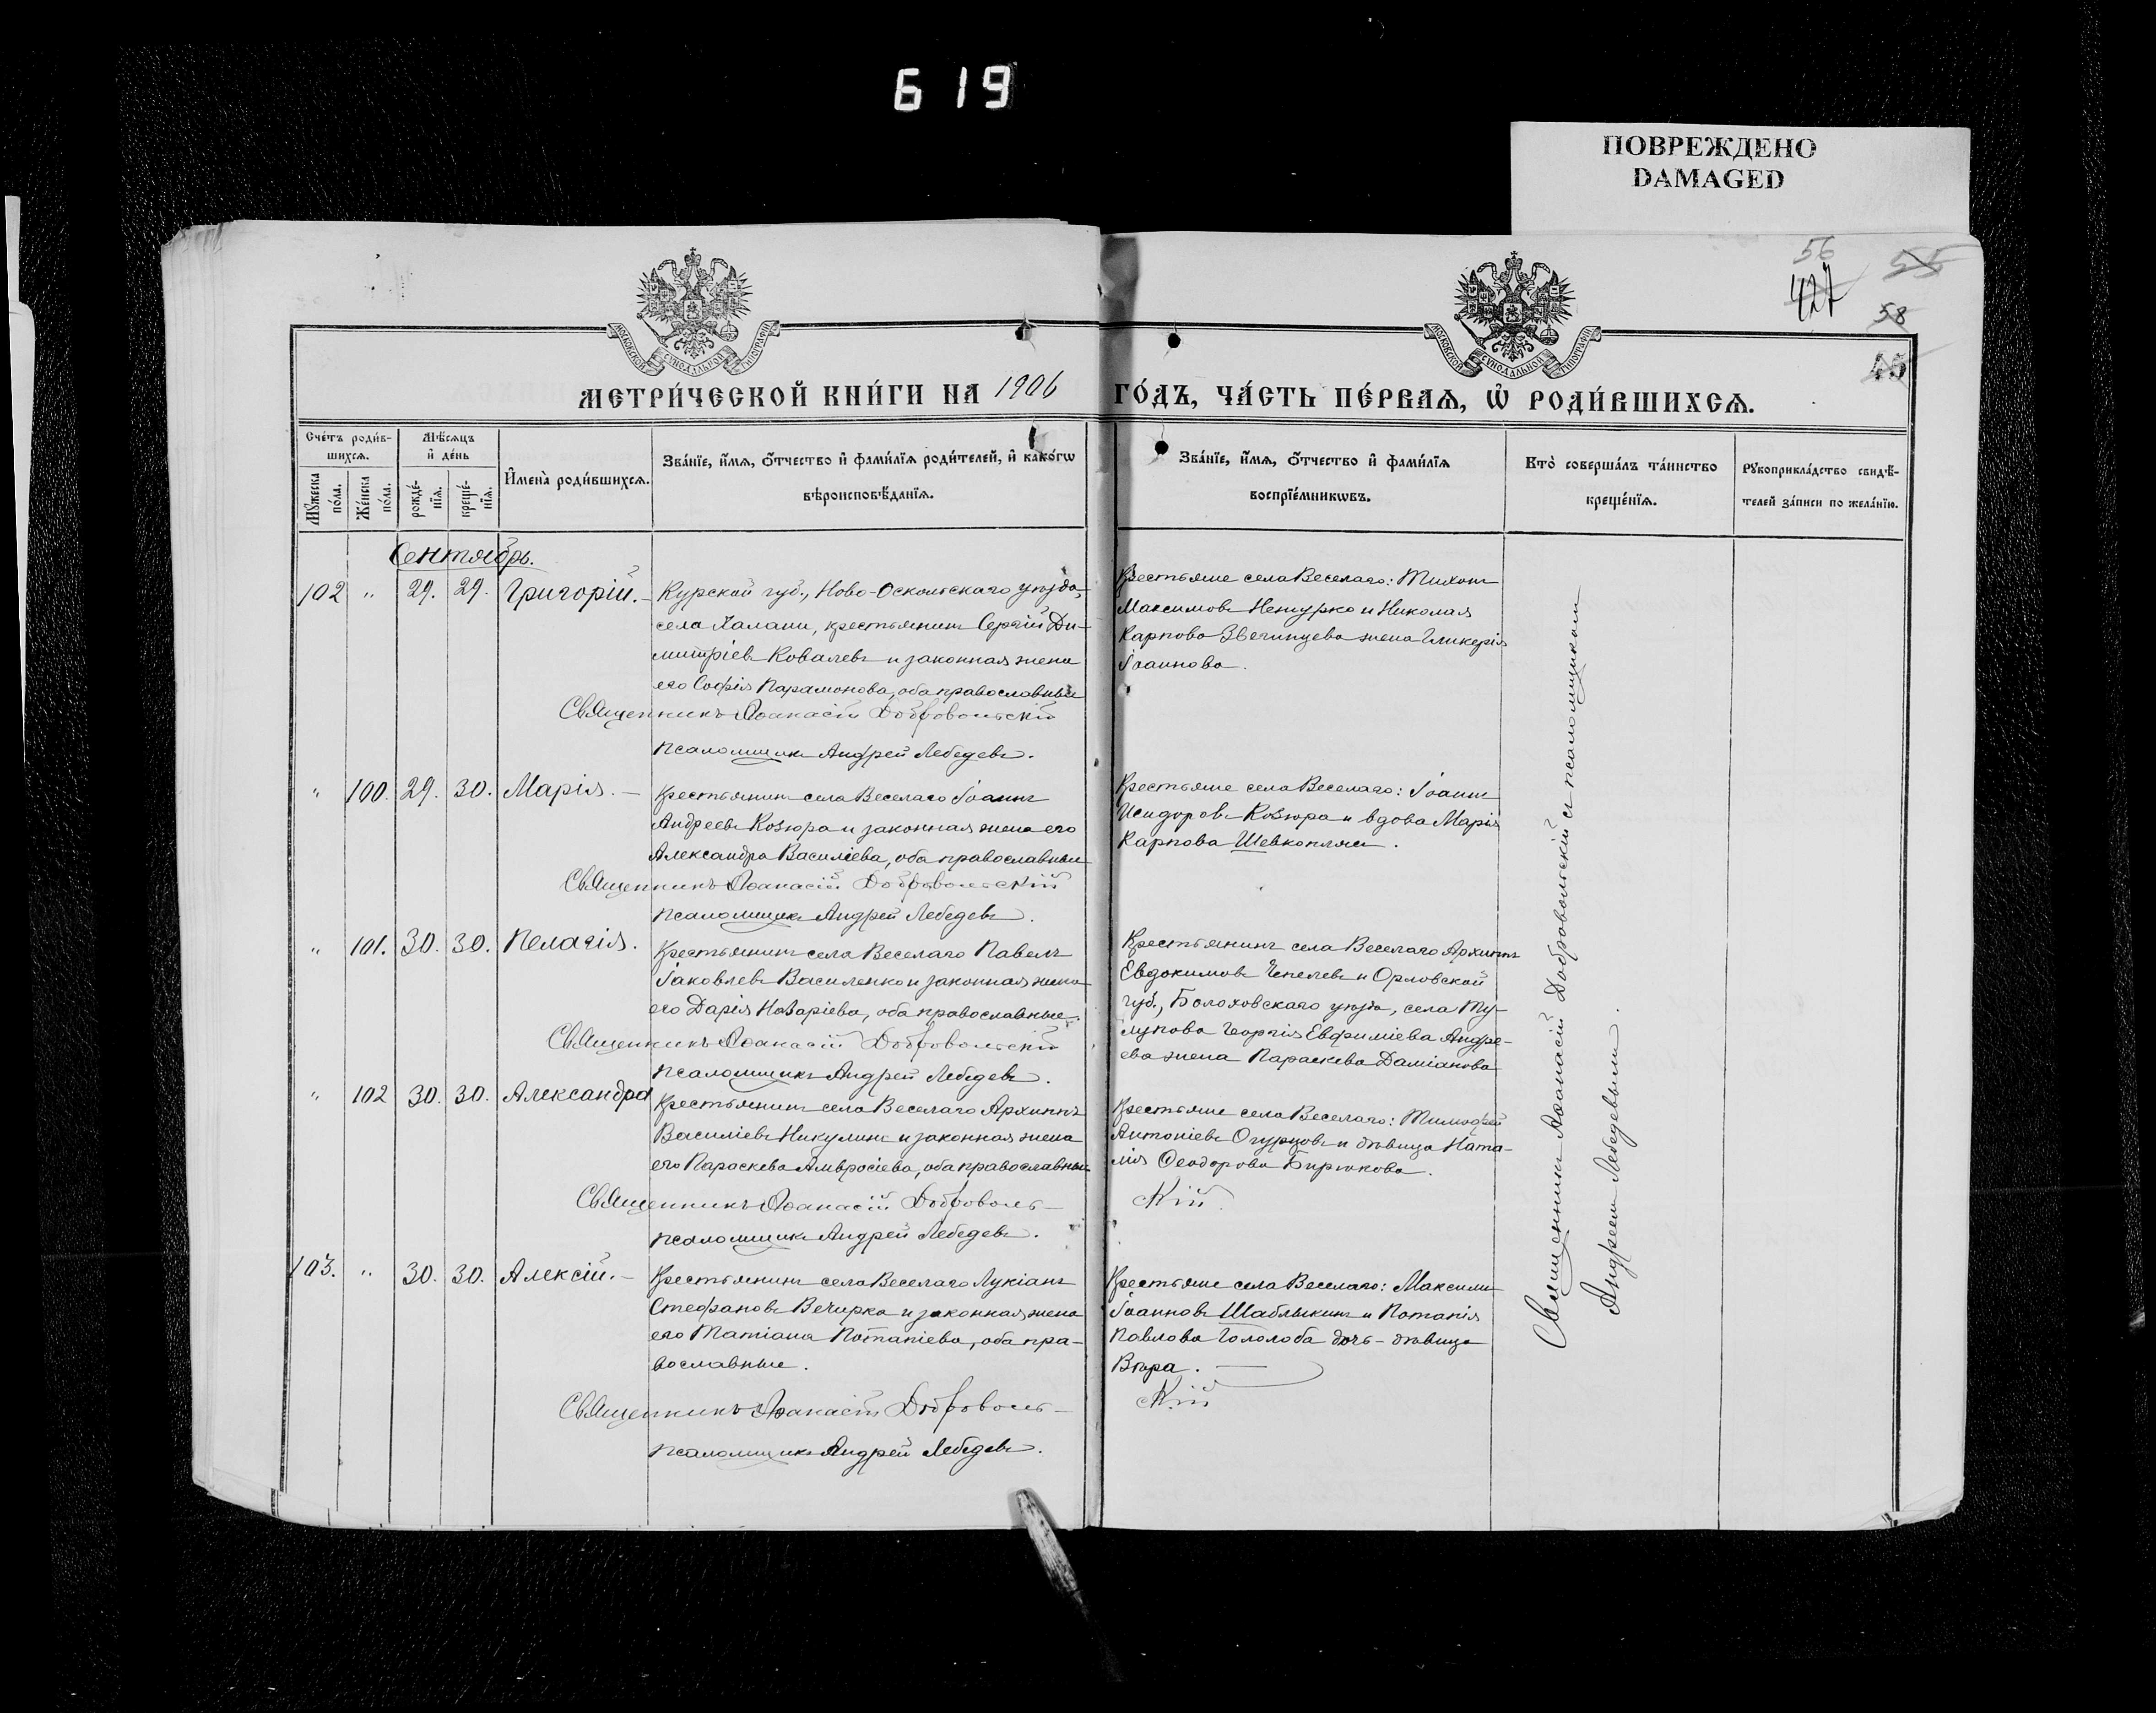 619
ПОВРЕЖДЕНО
DAMAGED
56
55
427
58
45
МОСКОВСКОЙ СѴНОДАЛЬНОЙ ТИПОГРАФІИ
МОСКОВСКОЙ СѴНОДАЛЬНОЙ ТИПОГРАФІИ
МЕТРИ́ЧЕСКОЙ КНИ́ГИ НА 1906 ГО́ДЪ, ЧА́СТЬ ПЕ́РВАѦ, Ѡ҆ РОДИ́ВШИХСѦ.
Сче́тъ роди́в-
шихсѧ.
Мꙋ́жеска по́ла.
Же́нска по́ла.
Мѣ́сѧцъ
и҆ де́нь
рожде́-
нїѧ.
креще́-
нїѧ.
И҆мена̀ роди́вшихсѧ.
Зва́нїе, и҆́мѧ, ѻ҆́тчество и҆ фами́лїѧ роди́телей, и҆ како́гѡ
вѣроисповѣ́данїѧ.
Зва́нїе, и҆́мѧ, ѻ҆́тчество и҆ фами́лїѧ
воспрїе́мникѡвъ.
Кто̀ соверша́лъ та́инство
креще́нїѧ.
Рꙋкоприкла́дство свидѣ́-
телей за́писи по жела́нїю.
Сентябрь.
102 " 29. 29. Григорій. –
Курской губ., Ново-Оскольскаго уѣзда,
села Халани, крестьянинъ Сергій Ди-
митріевъ Ковалевъ и законная жена
его Софія Парамонова, оба православные
Священникъ Аѳанасій Добровольскій
Псаломщикъ Андрей Лебедевъ.
Крестьяне села Веселаго: Тихонъ
Максимовъ Нешурко и Николая
Карпова Звегинцева жена Гликерія
Іоаннова.
" 100. 29. 30. Марія. –
Крестьянинъ села Веселаго Іоаннъ
Андреевъ Козюра и законная жена его
Александра Василіева, оба православные
Священникъ Аѳанасій Добровольскій
Псаломщикъ Андрей Лебедевъ.
Крестьяне села Веселаго: Іоаннъ
Исидоровъ Козюра и вдова Марія
Карпова Шевкоплясъ.
" 101. 30. 30. Пелагія.
Крестьянинъ села Веселаго Павелъ
Іаковлевъ Василенко и законная жена
его Дарія Назаріева, оба православные.
Священникъ Аѳанасій Добровольскій
Псаломщикъ Андрей Лебедевъ.
Крестьянинъ села Веселаго Архиппъ
Евдокимовъ Чепелевъ и Орловской
губ., Болоховскаго уѣзда, села Ту-
лупова Георгія Евфиміева Андре-
ева жена Параскева Даміанова
" 102 30. 30. Александра
Крестьянинъ села Веселаго Архиппъ
Василіевъ Никулинъ и законная жена
его Параскева Амвросіева, оба православные
Священникъ Аѳанасій Доброволь-
скій.
Псаломщикъ Андрей Лебедевъ.
Крестьяне села Веселаго: Тимофей
Антоніевъ Огурцовъ и дѣвица Ната-
лія Ѳеодорова Бирюкова.
103. " 30. 30. Алексій. –
Крестьянинъ села Веселаго Лукіанъ
Стефановъ Вечирка и законная жена
его Татіана Потапіева, оба пра-
вославные.
Священникъ Аѳанасій Доброволь-
скій
Псаломщикъ Андрей Лебедевъ.
Крестьяне села Веселаго: Максимъ
Іоанновъ Шаблыкинъ и Потапія
Павлова Гололоба дочь - дѣвица
Вѣра. —
Священникъ Аѳанасій Добровольскій съ псаломщикомъ
Андреемъ Лебедевымъ.